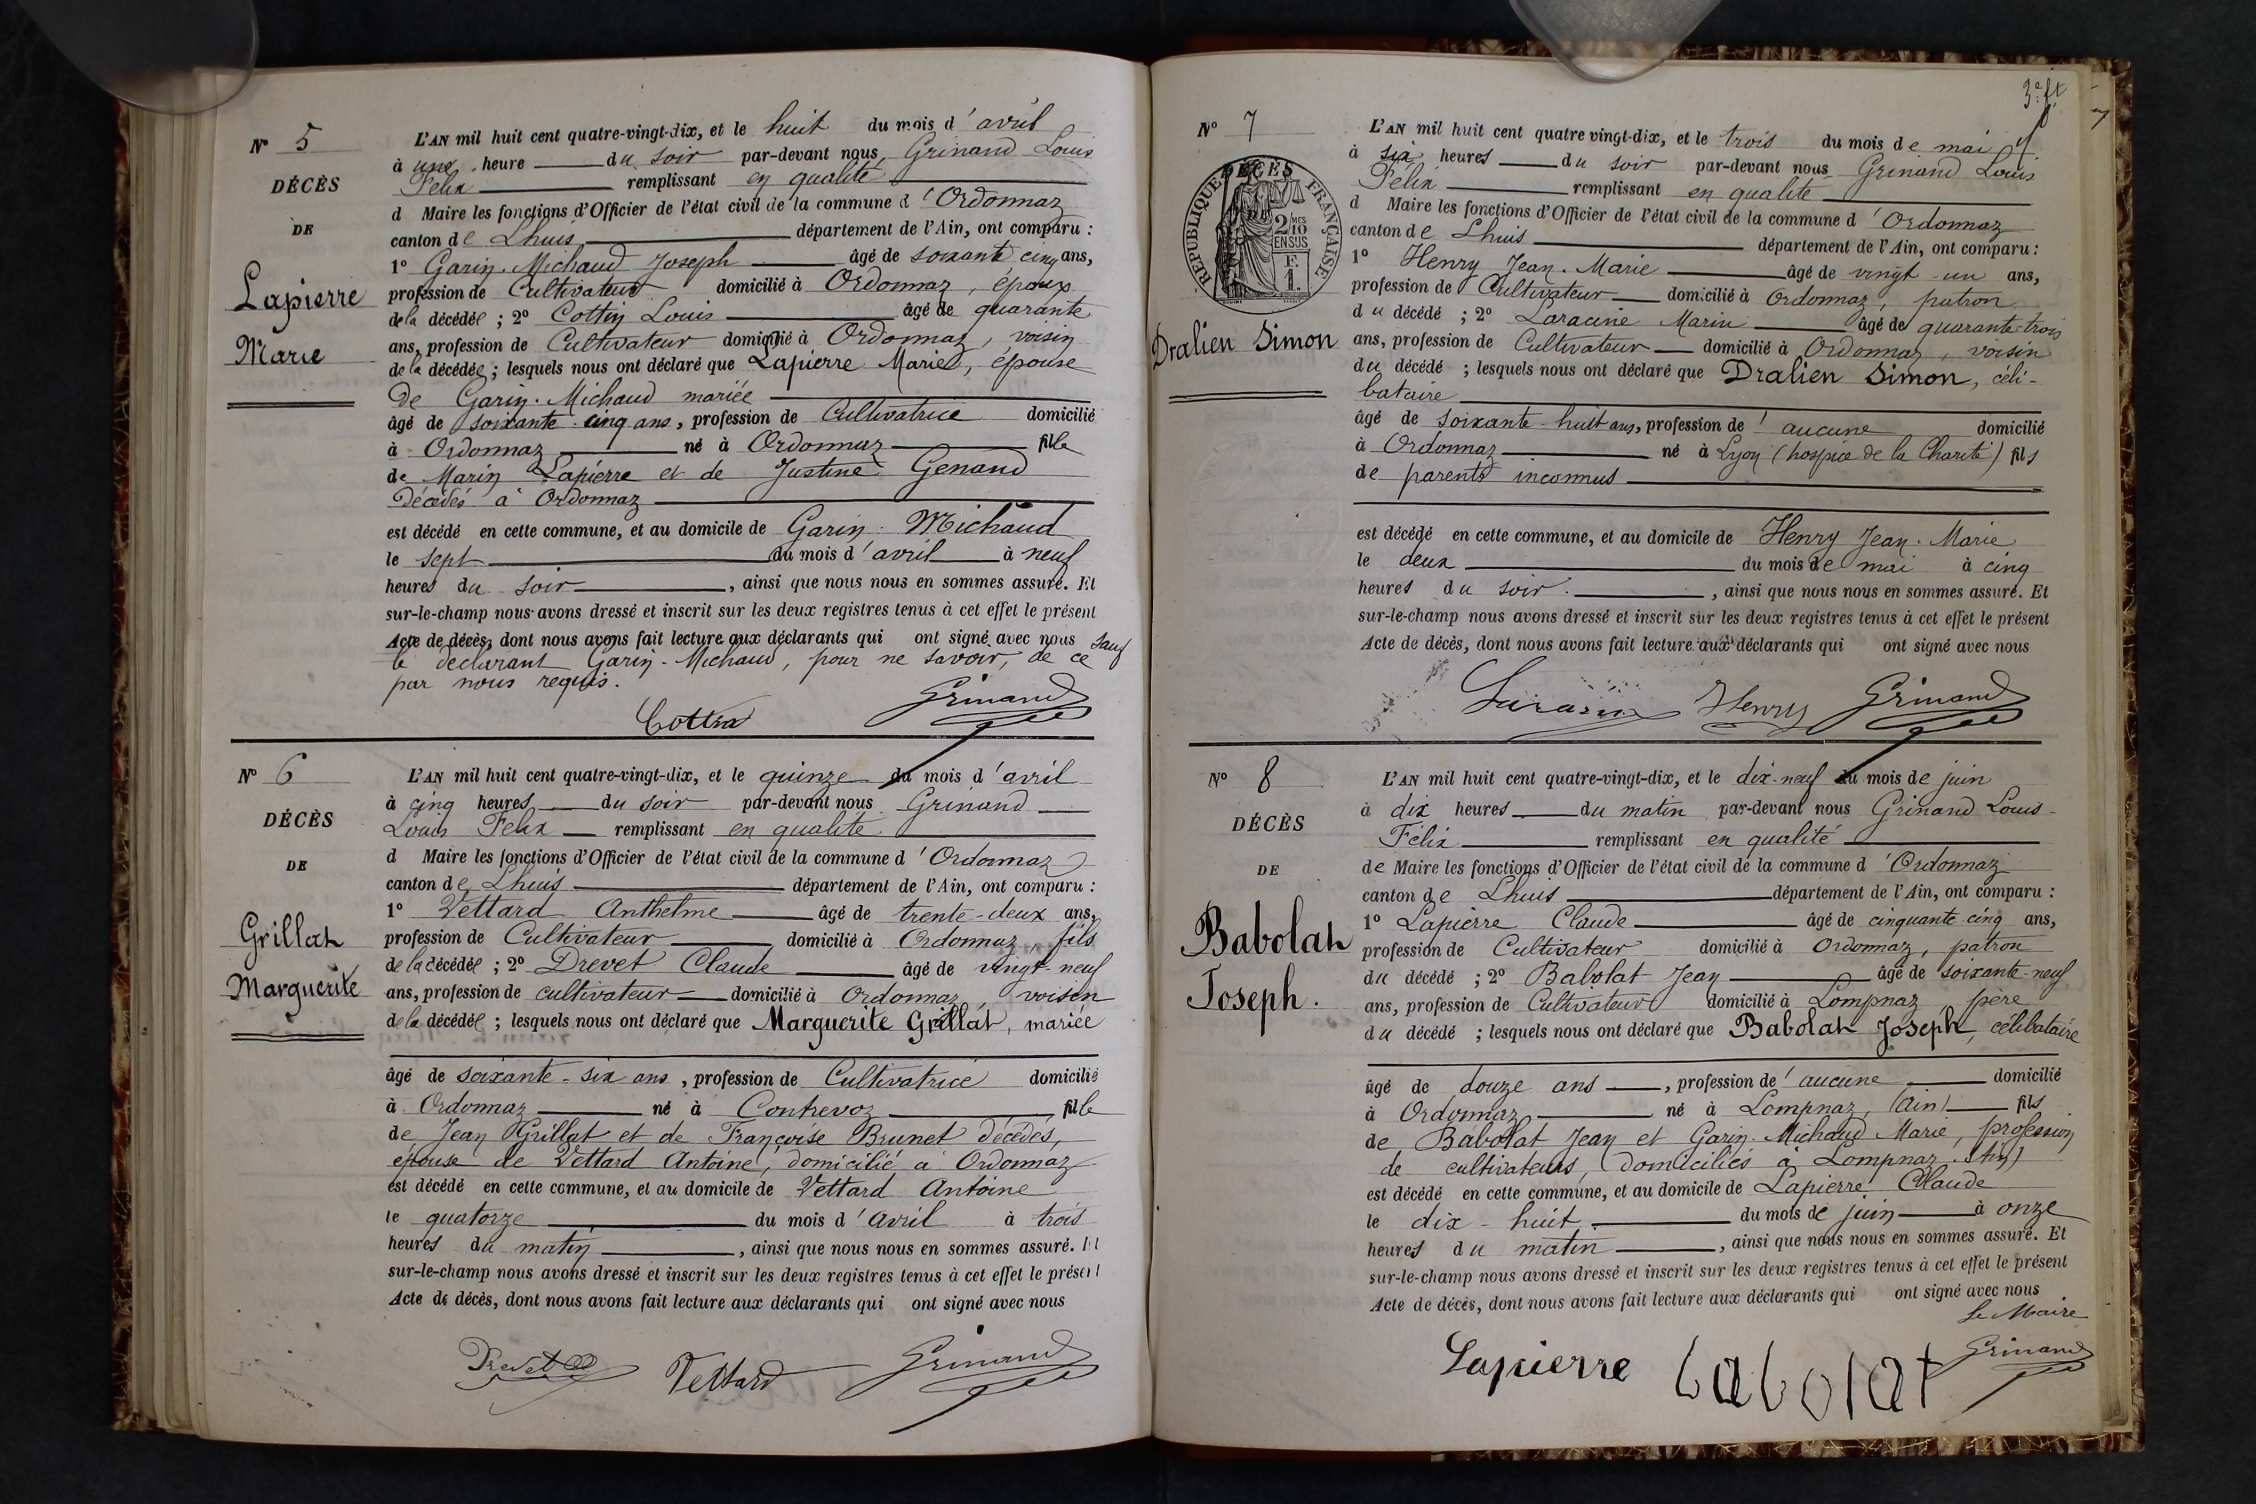 N° 5
DÉCÈS
DE
Lapierre
Marie
L'AN mil huit cent quatre-vingt-dix, et le huit du mois d'avril
à une heure du soir par-devant nous Grinand Louis
Félix remplissant en qualité
d Maire les fonctions d'Officier de l'état civil de la commune d'Ordonnaz
canton de Lhuis département de l'Ain, ont comparu :
1° Garin-Michaud Joseph âgé de soixante cinq ans,
profession de Cultivateur domicilié à Ordonnaz, époux
de la décédée ; 2° Cottin Louis âgé de quarante
ans, profession de Cultivateur domicilié à Ordonnaz, voisin
de la décédée ; lesquels nous ont déclaré que Lapierre Marie, épouse
de Garin-Michaud mariée
âgé de soixante-cinq ans, profession de Cultivatrice domicilié
à Ordonnaz né à Ordonnaz fille
de Marin Lapierre et de Justine Genand
Décédés à Ordonnaz
est décédé en cette commune, et au domicile de Garin-Michaud
le sept du mois d'avril à neuf
heures du soir, ainsi que nous nous en sommes assuré. Et
sur-le-champ nous avons dressé et inscrit sur les deux registres tenus à cet effet le présent
Acte de décès, dont nous avons fait lecture aux déclarants qui ont signé avec nous sauf
le déclarant Garin-Michaud, pour ne savoir, de ce
par nous requis.
Cottin Grinand
N° 6
DÉCÈS
DE
Grillat
Marguerite
L'AN mil huit cent quatre-vingt-dix, et le quinze du mois d'avril
à cinq heures du soir par-devant nous Grinand
Louis Félix remplissant en qualité
d Maire les fonctions d'Officier de l'état civil de la commune d'Ordonnaz
canton de Lhuis département de l'Ain, ont comparu :
1° Vettard Anthelme âgé de trente-deux ans,
profession de Cultivateur domicilié à Ordonnaz, fils
de la décédée ; 2° Drevet Claude âgé de vingt-neuf
ans, profession de cultivateur domicilié à Ordonnaz, voisin
de la décédée ; lesquels nous ont déclaré que Marguerite Grillat, mariée
âgé de soixante-six ans, profession de Cultivatrice domicilié
à Ordonnaz né à Contrevoz fille
de Jean Grillat et de Françoise Brunet décédés,
épouse de Vettard Antoine, domicilié à Ordonnaz
est décédé en cette commune, et au domicile de Vettard Antoine
le quatorze du mois d'avril à trois
heures du matin, ainsi que nous nous en sommes assuré. Et
sur-le-champ nous avons dressé et inscrit sur les deux registres tenus à cet effet le présent
Acte de décès, dont nous avons fait lecture aux déclarants qui ont signé avec nous
Drevet Vettard Grinand
3e ft
7
N° 7
DÉCÈS
RÉPUBLIQUE FRANÇAISE
2/10 MES
EN SUS
F.
1.
Dralien Simon
L'AN mil huit cent quatre vingt-dix, et le trois du mois de mai
à six heures du soir par-devant nous Grinand Louis
Félix remplissant en qualité
d Maire les fonctions d'Officier de l'état civil de la commune d'Ordonnaz
canton de Lhuis département de l'Ain, ont comparu :
1° Henry Jean-Marie âgé de vingt-un ans,
profession de Cultivateur domicilié à Ordonnaz, patron
du décédé ; 2° Laracine Marin âgé de quarante-trois
ans, profession de Cultivateur domicilié à Ordonnaz, voisin
du décédé ; lesquels nous ont déclaré que Dralien Simon, céli-
bataire
âgé de soixante-huit ans, profession d'aucune domicilié
à Ordonnaz né à Lyon (hospice de la Charité) fils
de parents inconnus
est décédé en cette commune, et au domicile de Henry Jean-Marie
le deux du mois de mai à cinq
heures du soir., ainsi que nous nous en sommes assuré. Et
sur-le-champ nous avons dressé et inscrit sur les deux registres tenus à cet effet le présent
Acte de décès, dont nous avons fait lecture aux déclarants qui ont signé avec nous
Henry Grinand
N° 8
DÉCÈS
DE
Babolat
Joseph.
L'AN mil huit cent quatre-vingt-dix, et le dix-neuf du mois de juin
à dix heures du matin par-devant nous Grinand Louis-
Félix remplissant en qualité
de Maire les fonctions d'Officier de l'état civil de la commune d'Ordonnaz
canton de Lhuis département de l'Ain, ont comparu :
1° Lapierre Claude âgé de cinquante cinq ans,
profession de Cultivateur domicilié à Ordonnaz, patron
du décédé ; 2° Babolat Jean âgé de soixante-neuf
ans, profession de Cultivateur domicilié à Lompnaz père
du décédé ; lesquels nous ont déclaré que Babolat Joseph, célibataire
âgé de douze ans, profession d'aucune domicilié
à Ordonnaz né à Lompnaz, (Ain) fils
de Babolat Jean et Garin-Michaud Marie, profession
de cultivateurs, domiciliés à Lompnaz (Ain)
est décédé en cette commune, et au domicile de Lapierre Claude
le dix-huit du mois de juin à onze
heures du matin, ainsi que nous nous en sommes assuré. Et
sur-le-champ nous avons dressé et inscrit sur les deux registres tenus à cet effet le présent
Acte de décès, dont nous avons fait lecture aux déclarants qui ont signé avec nous
Le Maire
Lapierre babolat Grinand